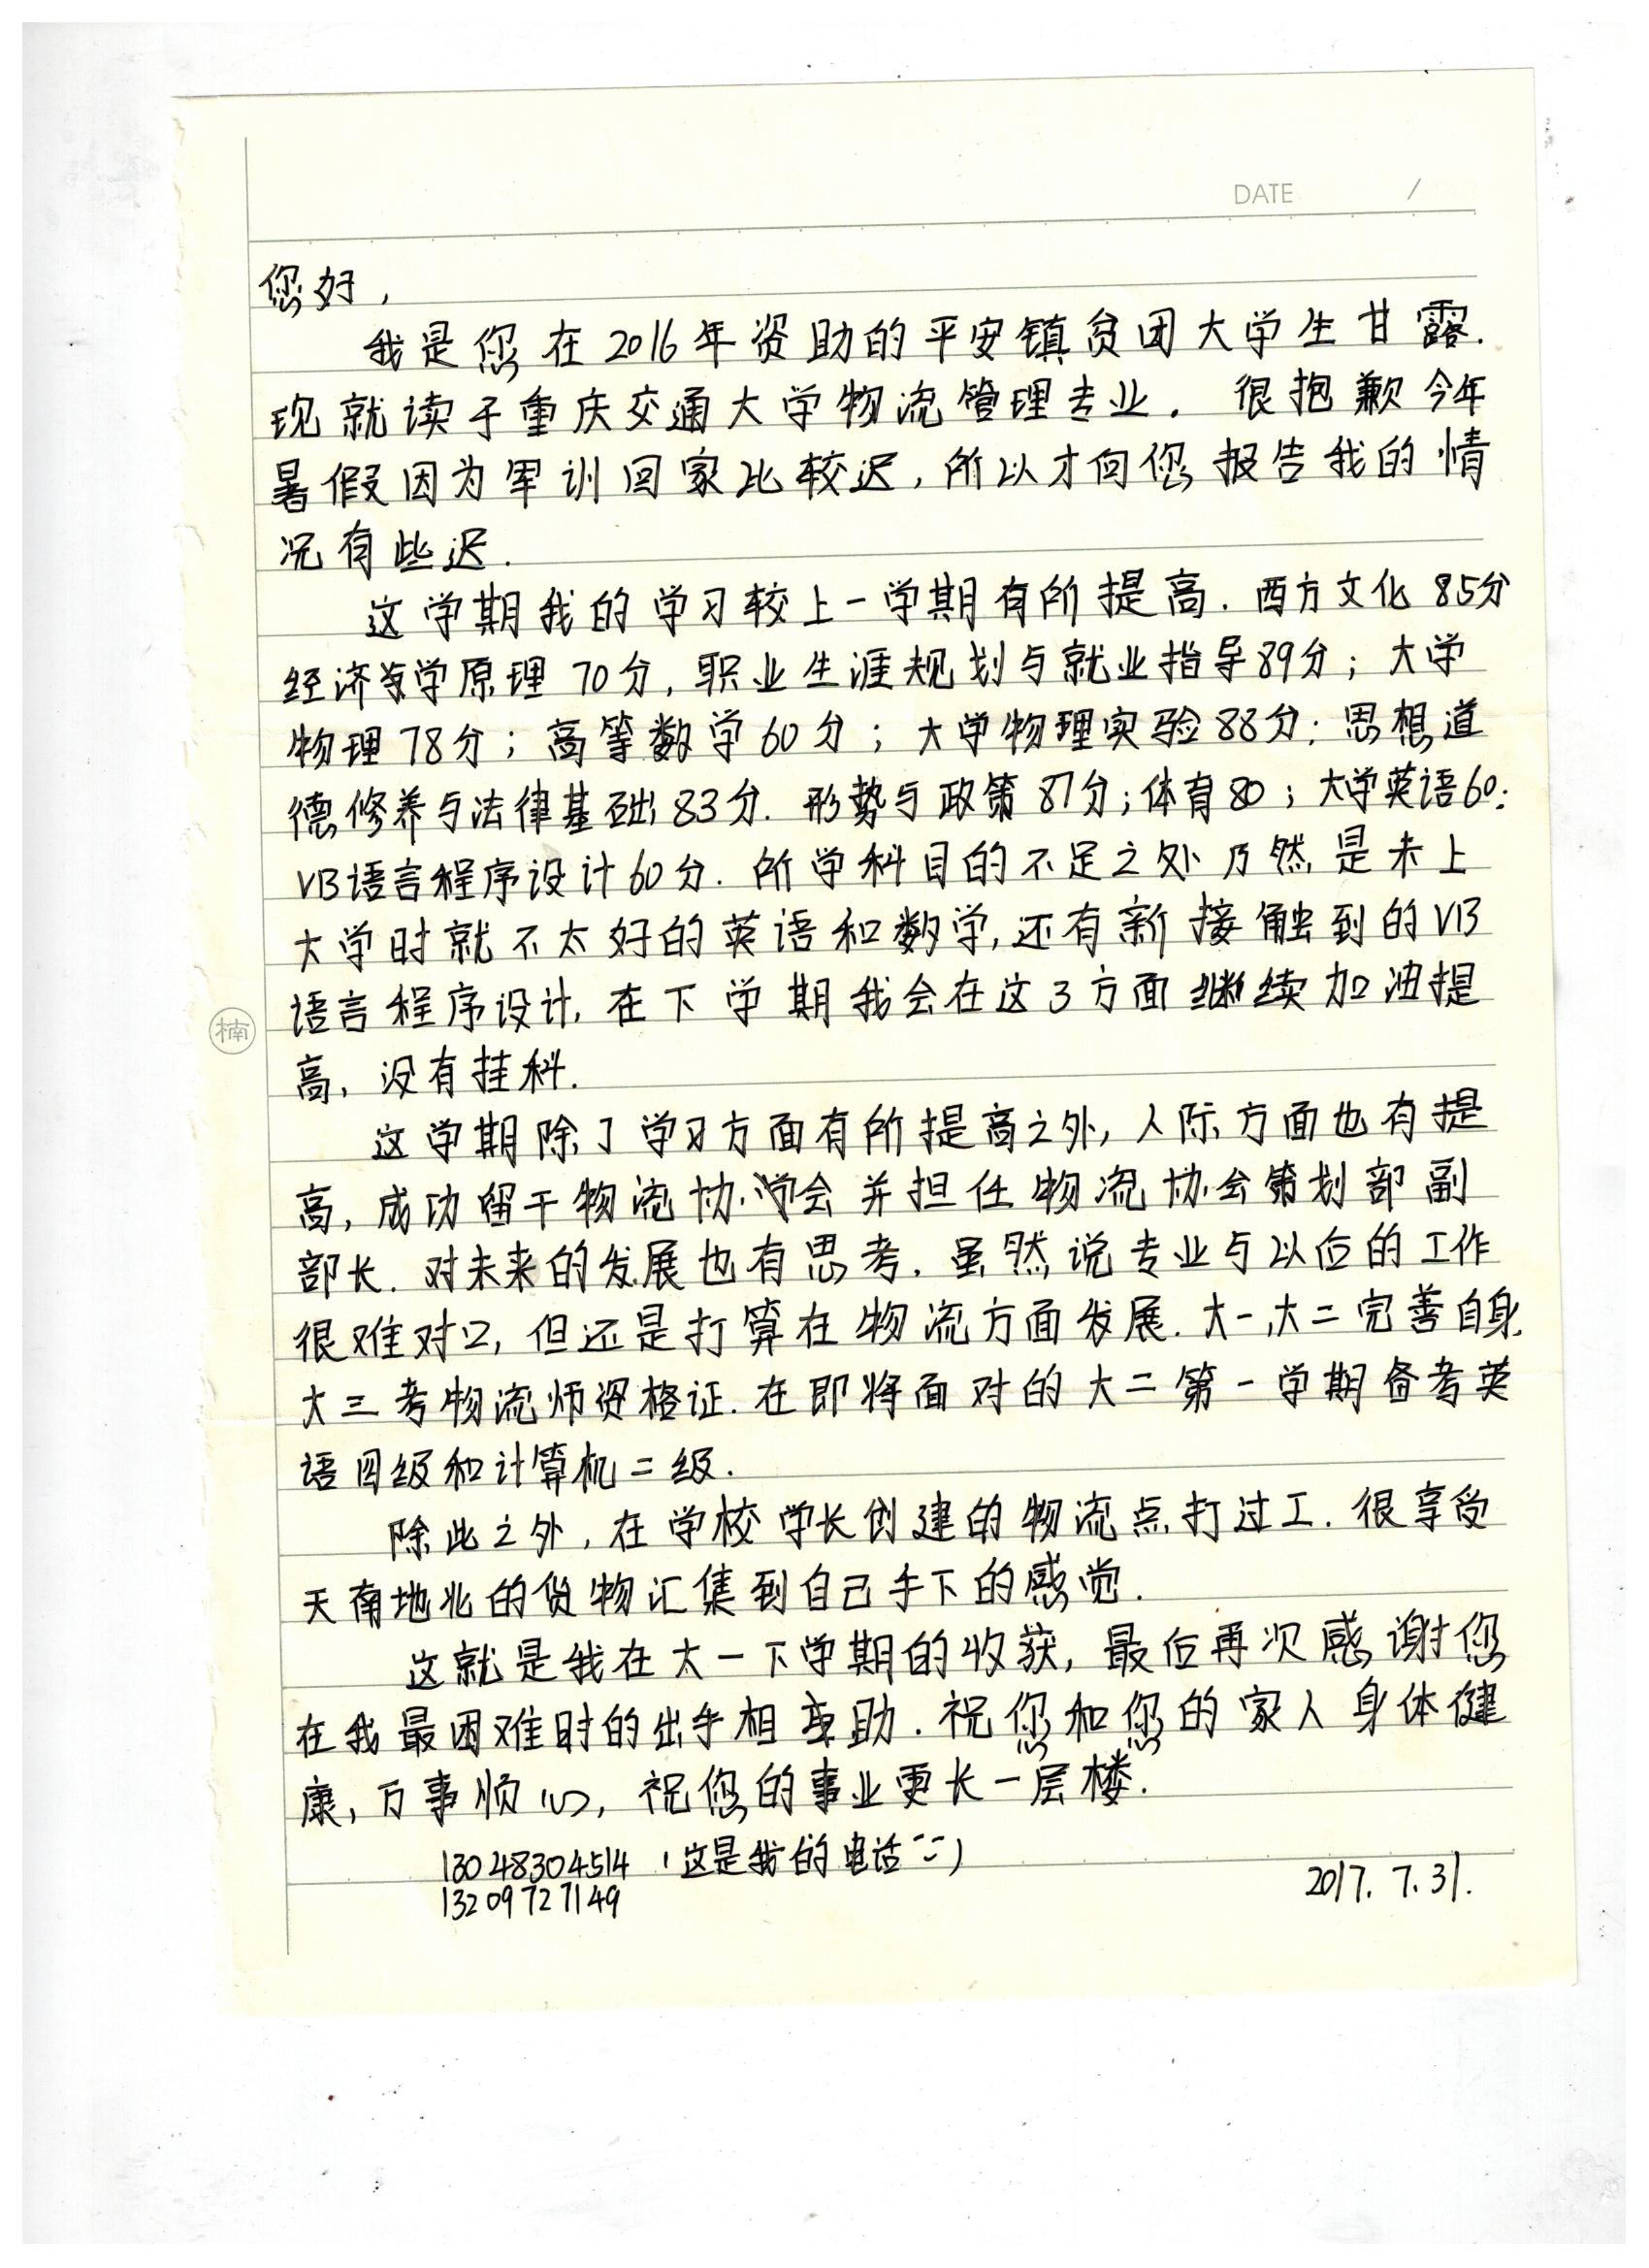 DATE /
您好,
我是您在2016年资助的平安镇贫困大学生甘露.
现就读于重庆交通大学物流管理专业. 很抱歉今年
暑假因为军训回家比较迟,所以才向您报告我的情
况有些迟.
这学期我的学习较上一学期有所提高. 西方文化 85分
经济学原理 70分, 职业生涯规划与就业指导89分; 大学
物理 78分; 高等数学 60分; 大学物理实验 88分; 思想道
德修养与法律基础 83分. 形势与政策 87分; 体育80; 大学英语60;
VB语言程序设计60分. 所学科目的不足之处乃然是未上
大学时就不太好的英语和数学,还有新接触到的VB
语言程序设计, 在下学期我会在这3方面继续加油提
高, 没有挂科.
这学期除了学习方面有所提高之外, 人际方面也有提
高, 成功留干物流协会并担任物流协会策划部副
部长. 对未来的发展也有思考. 虽然说专业与以后的工作
很难对口, 但还是打算在物流方面发展. 大一,大二完善自身,
大三考物流师资格证. 在即将面对的大二第一学期备考英
语四级和计算机二级.
除此之外, 在学校学长创建的物流点打过工. 很享受
天南地北的货物汇集到自己手下的感觉.
这就是我在大一下学期的收获, 最后再次感谢您
在我最困难时的出手相助. 祝您和您的家人身体健
康, 万事顺心, 祝您的事业更长一层楼.
13048304514 (这是我的电话)
13209727149
2017. 7. 31.
楠